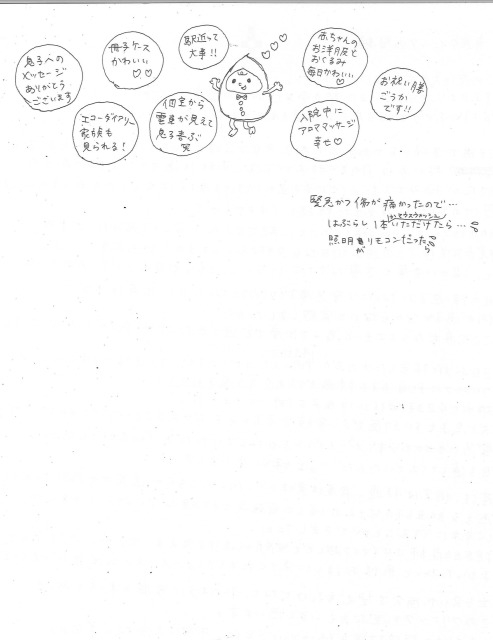 息子への
メッセージ
ありがとう
ございます
冊子ケース
かわいい
♡♡
駅近って
大事!!
赤ちゃんの
お洋服と
おくるみ
毎日かわいい
♡
お祝い膳
ごうか
です!!
エコーダイアリー
家族も
見られる!
個室から
電車が見えて
息子喜ぶ
笑
入院中に
アロママッサージ
幸せ♡
緊急かつ傷が痛かったので…
はぶらし1本いただけたら…
照明がリモコンだったら